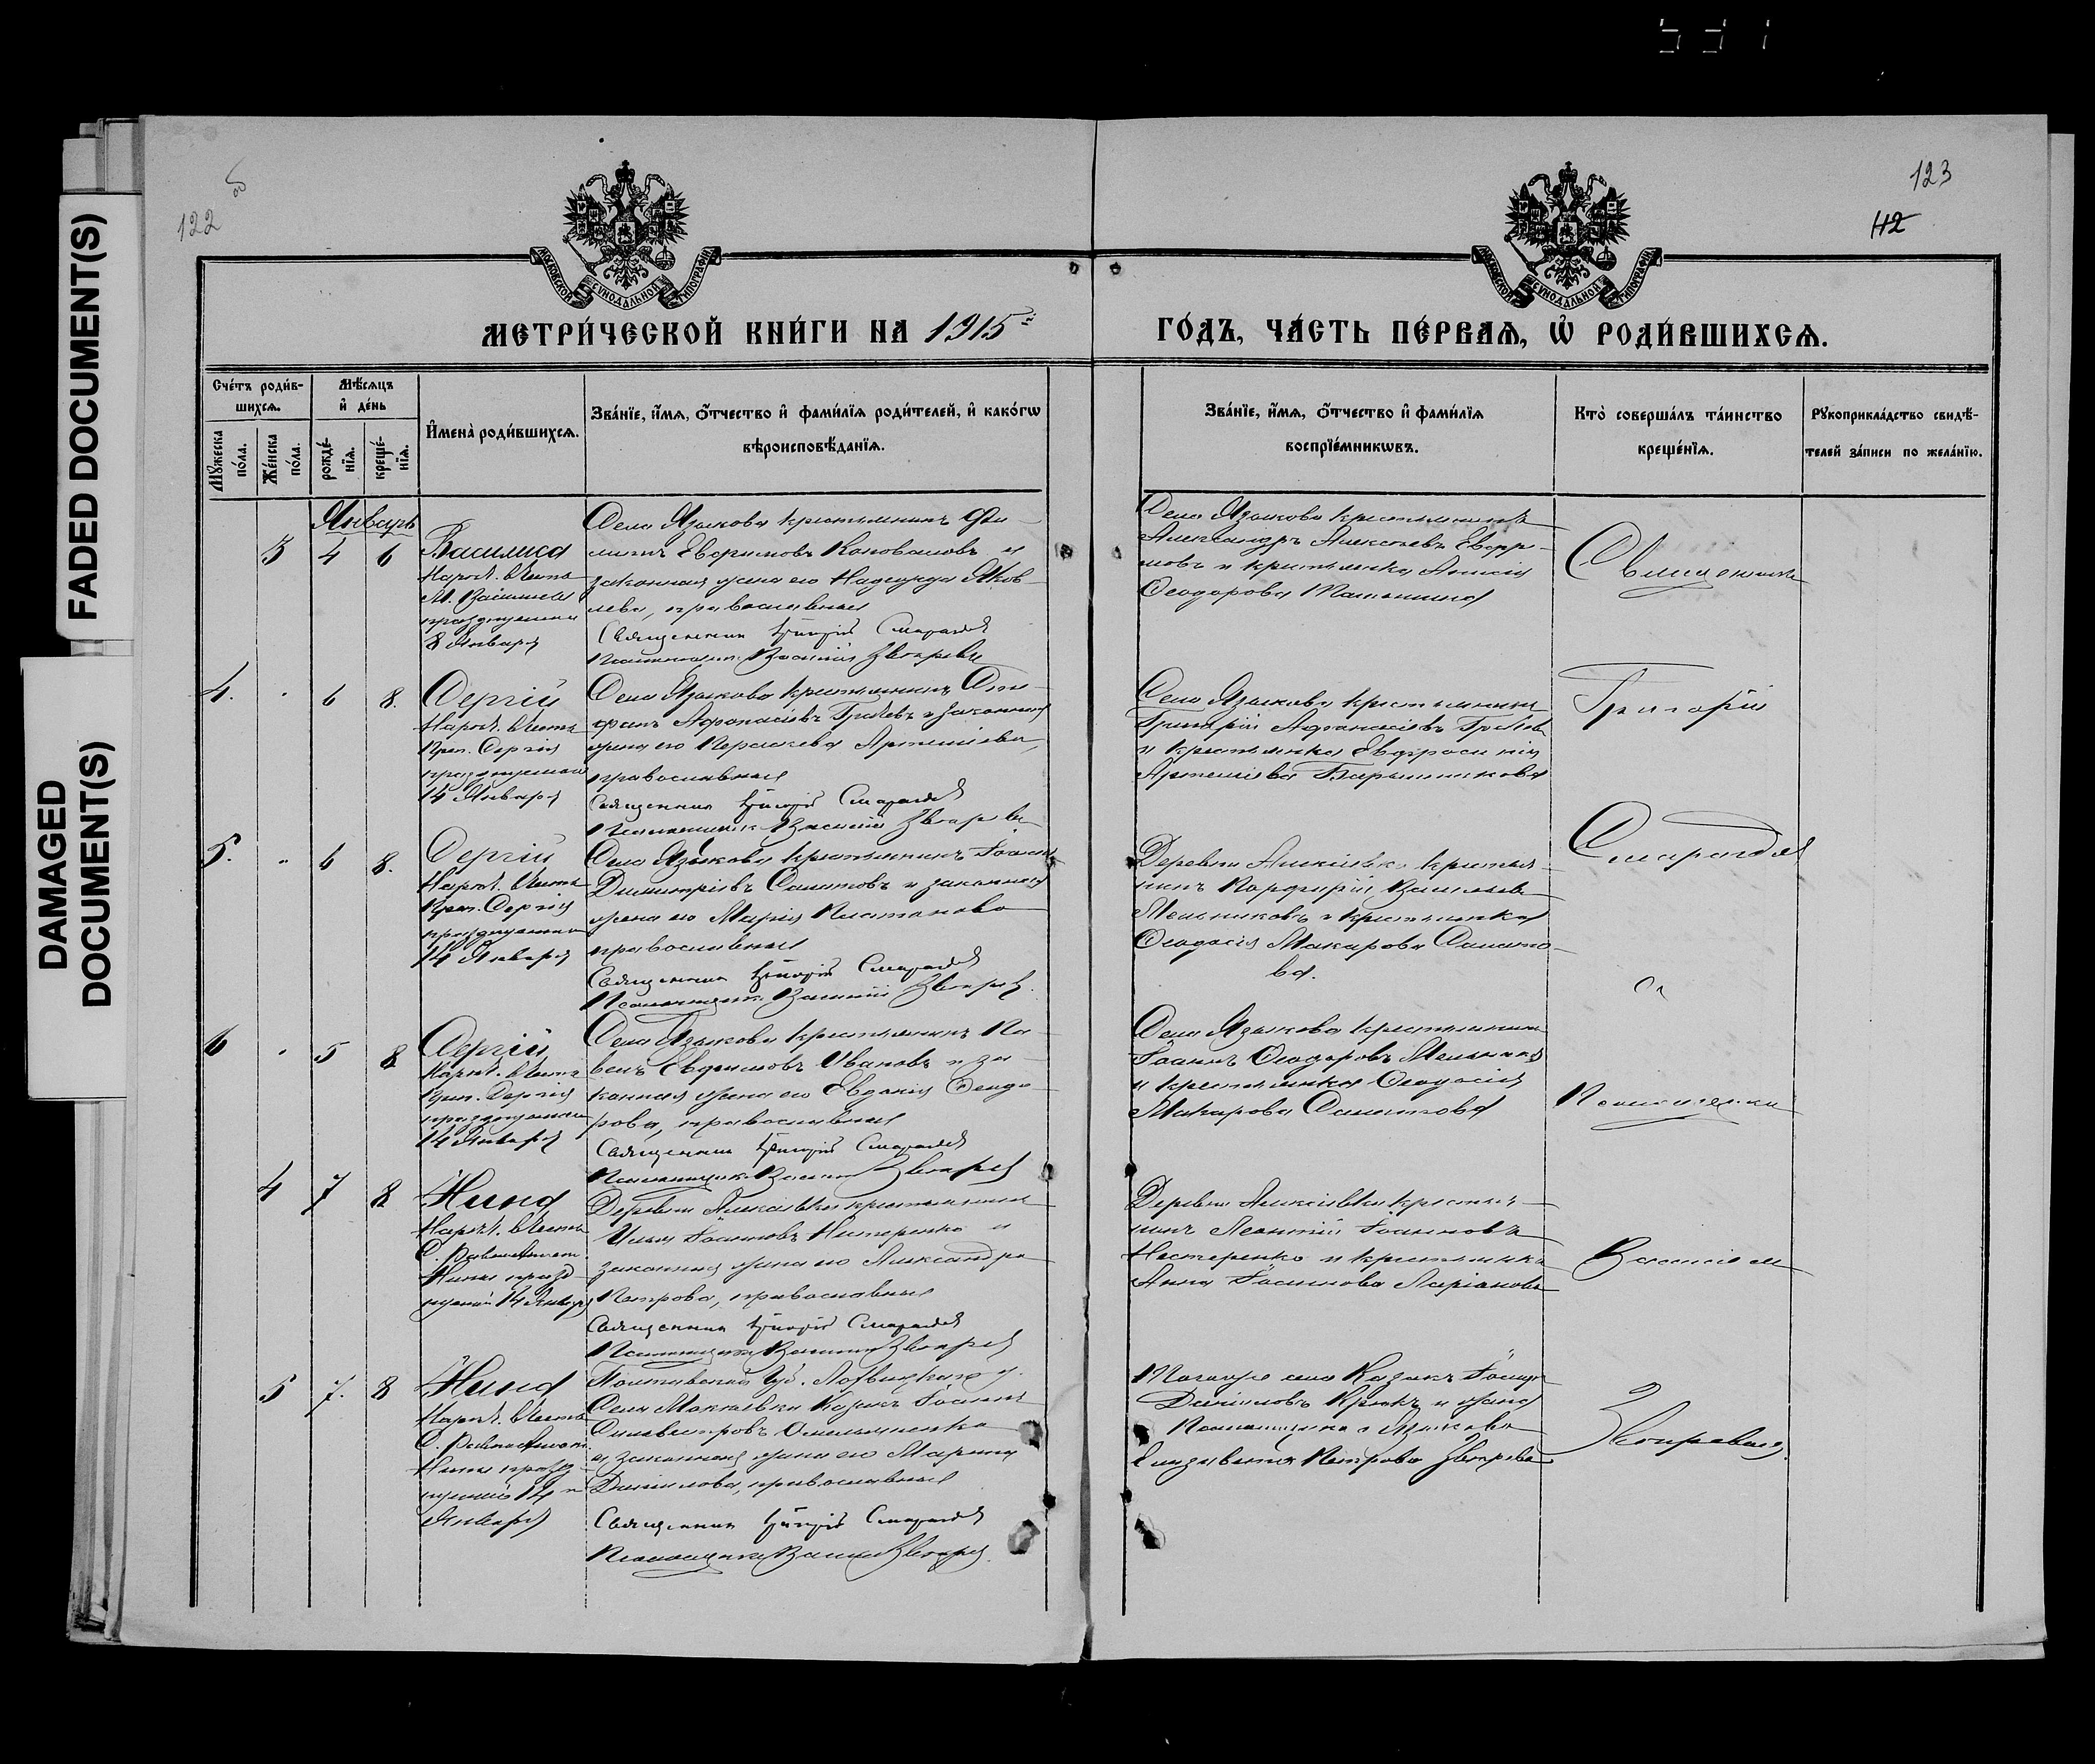 531
FADED DOCUMENT(S)
DAMAGED
DOCUMENT(S)
122 об
123
112
МОСКОВСКОЙ СУНОДАЛЬНОЙ ТИПОГРАФІИ
МОСКОВСКОЙ СУНОДАЛЬНОЙ ТИПОГРАФІИ
МЕТРИ́ЧЕСКОЙ КНИ́ГИ НА 1915й
ГО́ДЪ, ЧА́СТЬ ПЕ́РВАѦ, Ѽ РОДИ́ВШИХСѦ.
Сче́тъ роди́в-
шихсѧ.
Мѣ́сѧцъ
и҆ де́нь
Мꙋ́жеска
по́ла.
Же́нска
по́ла.
рожде́-
нїѧ.
креще́-
нїѧ.
И҆мена̀ роди́вшихсѧ.
Зва́нїе, и҆́мѧ, ѻ҆́тчество и҆ фами́лїѧ роди́телей, и҆ како́гѡ
вѣроисповѣ́данїѧ.
Зва́нїе, и҆́мѧ, ѻ҆́тчество и҆ фами́лїѧ
воспрїе́мникѡвъ.
Кто̀ соверша́лъ та́инство
креще́нїѧ.
Рꙋкоприкла́дство свидѣ́-
телей за́писи по жела́нїю.
Январь
3 4 6
Василиса
Нареч. въ честь
М. Василисы
празднуемой
8 Января
Села Языкова крестьянинъ Фи-
липпъ Евфимовъ Коноваловъ и
законная жена его Надежда Яков-
лева, православные
Священникъ Григорій Смарагдовъ
Псаломщикъ Василій Звѣревъ
Села Языкова крестьянинъ
Александръ Алексѣевъ Евфи-
мовъ и крестьянка Анисія
Ѳеодорова
Священникъ
4. " 6 8.
Сергій
Нареч. въ честь
Преп. Сергія
празднуемаго
14 Января
Села Языкова крестьянинъ Сте-
фанъ Аѳанасіевъ Грибевъ и законная
жена его Параскева Артеміева,
православные
Священникъ Григорій Смарагдовъ
Псаломщикъ Василій Звѣревъ
Села Языкова крестьянинъ
Григорій Аѳанасіевъ Грибевъ
и крестьянка Евфросинія
Артеміева Барышникова
Григорій
5. " 6 8.
Сергій
Нареч. въ честь
Преп. Сергія
празднуемаго
14 Января
Села Языкова крестьянинъ Іоаннъ
Димитріевъ Салматовъ и законная
жена его Марія Платонова
православные
Священникъ Григорій Смарагдовъ
Псаломщикъ Василій Звѣревъ
Деревни Алексѣевки крестья-
нинъ Порфирій Васильевъ
Мельниковъ и крестьянка
Ѳеодосія Макарова Салмато-
ва.
Смарагдовъ
съ
6 " 5 8
Сергій
Нареч. въ честь
Преп. Сергія
празднуемаго
14 Января
Села Языкова крестьянинъ Па-
велъ Евфимовъ Ивановъ и за-
конная жена его Евдокія Ѳеодо-
рова, православные
Священникъ Григорій Смарагдовъ
Псаломщикъ Василій Звѣревъ
Села Языкова крестьянинъ
Іоаннъ Ѳеодоровъ Мельниковъ
и крестьянка Ѳеодосія
Макарова Салматова
Псаломщикомъ
4 7 8
Нина
Нареч. въ честь
С. Равноапост.
Нины празд-
нуемой 14 Января
Деревни Алексѣевки крестьянинъ
Илья Іоанновъ Нестеренко и
законная жена его Александра
Петрова, православные
Священникъ Григорій Смарагдовъ
Псаломщикъ Василій Звѣревъ
Деревни Алексѣевки крестья-
нинъ Леонтій Іоанновъ
Нестеренко и крестьянка
Анна Іоаннова Ларіонова
Василіемъ
5 7. 8
Нина
Нареч. въ честь
С. Равноапост.
Нины празд-
нуемой 14
Января
Полтавской губ. Лохвицкаго у.
Села Козакъ Іоаннъ
Сильвестровъ Омельченко
и законная жена его Марина
Даніилова, православные
Священникъ Григорій Смарагдовъ
Псаломщикъ Василій Звѣревъ
Того же села Казакъ Іоаннъ
Даніиловъ и жена
Псаломщика с. Языкова
Елизавета Петрова Звѣрева
Звѣревымъ.